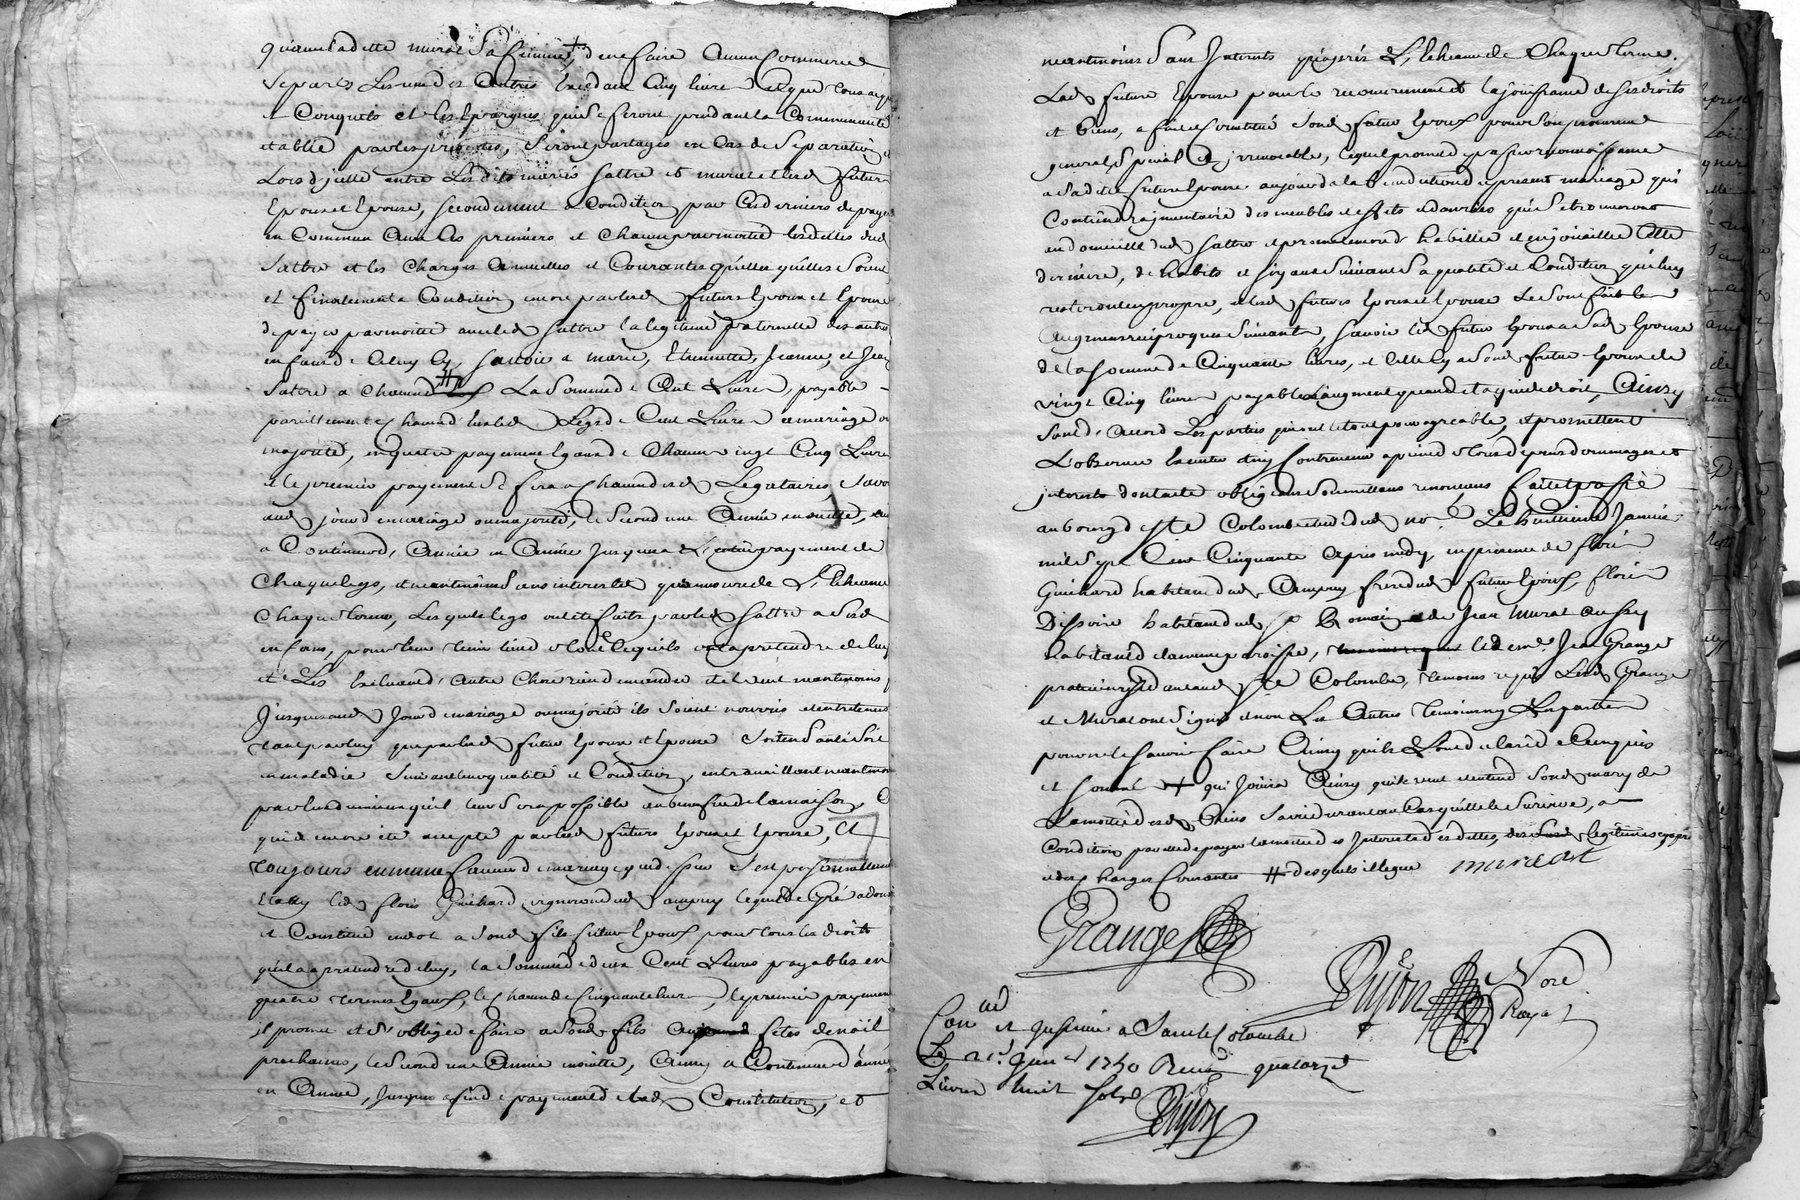 qu'avec ladette murat Sa femme, d'en faire aucun Commerce
Separés Les uns des Autres Excedant Cinq livres Et que tous acqu
et Conquets et les Epargnes qui Se feront pendant la Communauté
etablie par les presentes, Seront partagés en Cas de Separation
Lors d'jcelle entre Lesdits mariés Sattre et murat et lesd futurs
Epoux et Epouse, Secondement a Condition par Ces derniers de payer
en Commun avec les premiers et Chacun par moitié les dettes dud
Sattre et les Charges annuelles et Courantes qu'elles qu'elles Soient
et finalement a Condition encore par lesd futurs Epoux et Epouse
de payer par moitié avec led Sattre la legitime paternelle des autres
enfants de Celuy Cy, Savoir a marie, Jeanne, et
Sattre a Chacune La Somme de Cent Livres, payable
pareillement a Chacun lesd Legs de Cent Livres a mariage ou
majorité, en quatre payements Egaux de Chacun vingt Cinq Livres
et le premier payement Se fera a Chacun desd Legataires Savoir
aud jour de mariage ou majorité, le Second une Année ensuitte, et
a Continuer d'Année en Année jusques a L'entier payement de
Chaque legs, et neantmoins Sans interests qu'a mesure de L'Echeance
Chaque terme, Lesquels legs ont été faits par led Sattre a Sesd
enfans, pour leur tenir lieu de tout ce qu'ils ont a pretendre de luy
et Les Excluant d'autre Chose rien demander et veut neantmoins
Jusques aud Jour de mariage ou majorité ils Soient nourris et entretenus
tant par luy que par lesd futurs Epoux et Epouse Soit en Santé Soit
en maladie Suivant leur qualité et Condition, en travaillant neantmoins
par leur mieux qu'il leur Sera possible au bien de lamaison, C
qui a encore été accepté par lesd futurs Epoux et Epouse, Et
toujours en meme faveur de mariage que dessus S'est personnellement
Etably led floris Guichard vigneron dud lequel de Gré a donné
et Constitué en dot a Sond fils futur Epoux pour tous les droits
qu'il a a pretendre de luy, la Somme de deux Cent Livres payables en
quatre termes Egaux, de Chacun de Cinquante livres, le premier payement
il promet et S'oblige de faire a Sond fils fetes de noël
prochaines, le Second une Année ensuitte, Ainsy a Continuer d'année
en Année, Jusques a fin de payement de lad Constitution, et
neantmoins Sans Interests qu'après L'Echeance de Chaque terme,
Lad future Epouse pour le recouvrement et la jouissance de Ses droits
et biens, a fait et Constitué Sond futur Epoux pour Son procureur
general, Special et jrrevocable, lequel promet passer reconnoissance
a Sadite future Epouse aujourd de la benediction du present mariage qui
Contiendra jnventaire des meubles et effets et denrées qui Se trouveront
au domicille dud Sattre et promettent d'habiller et enjoüailler Cette
derniere, de habits et joyaux Suivant Sa qualité et Condition qui luy
resteront en propre, et lesd futurs Epoux et Epouse Se Sont fait les
augments reciproques Suivants, Savoir led futur Epoux a Sad Epouse
de la Somme de Cinquante livres, et Celle Cy a Sond futur Epoux de
vingt Cinq livres payables L'augment quand et a qui de droit, Ainsy
Sont d'accord Les parties qui ont le tout pour agreable, et promettent
L'observer Sans y Contrevenir a peine de tous depens dommages et
jnterests dont acte obligeant Soumettant renonceant fait et passé
au bourg de Ste Colombe etude dud no.re Le huitieme Janvier
mil Sept Cent Cinquante Apres midy, en presence de floris
Guichard habitant dud frere dud futur Epoux, floris
Dissoire habitant dud St Romain et de Jean Murat aussy
habitant de la meme paroisse, led em.e Jean Grange
praticien au aud Ste Colombe, temoins requis Lesd Grange
et Murat ont Signé et non Les Autres temoins ny Les parties
pour ne le Savoir faire Ainsy qu'ils L'ont declaré de Ce enquis
et Sommé + qui Jouira Ainsy qu'il veut et entend Sond mary de
La moitié desd biens Sa vie durant au Cas qu'il le Survive, a
Condition par elle de payer la moitié des Interests desdettes, legitimes
et des Charges Courantes # desquels il legue mureat
Grange
Dujon No.re Royal
Con.lé et jnsinué a Sainte Colombe
Le 21.e Janv.er 1750 Reçu quatorze
Livres huit Sols
Dujon